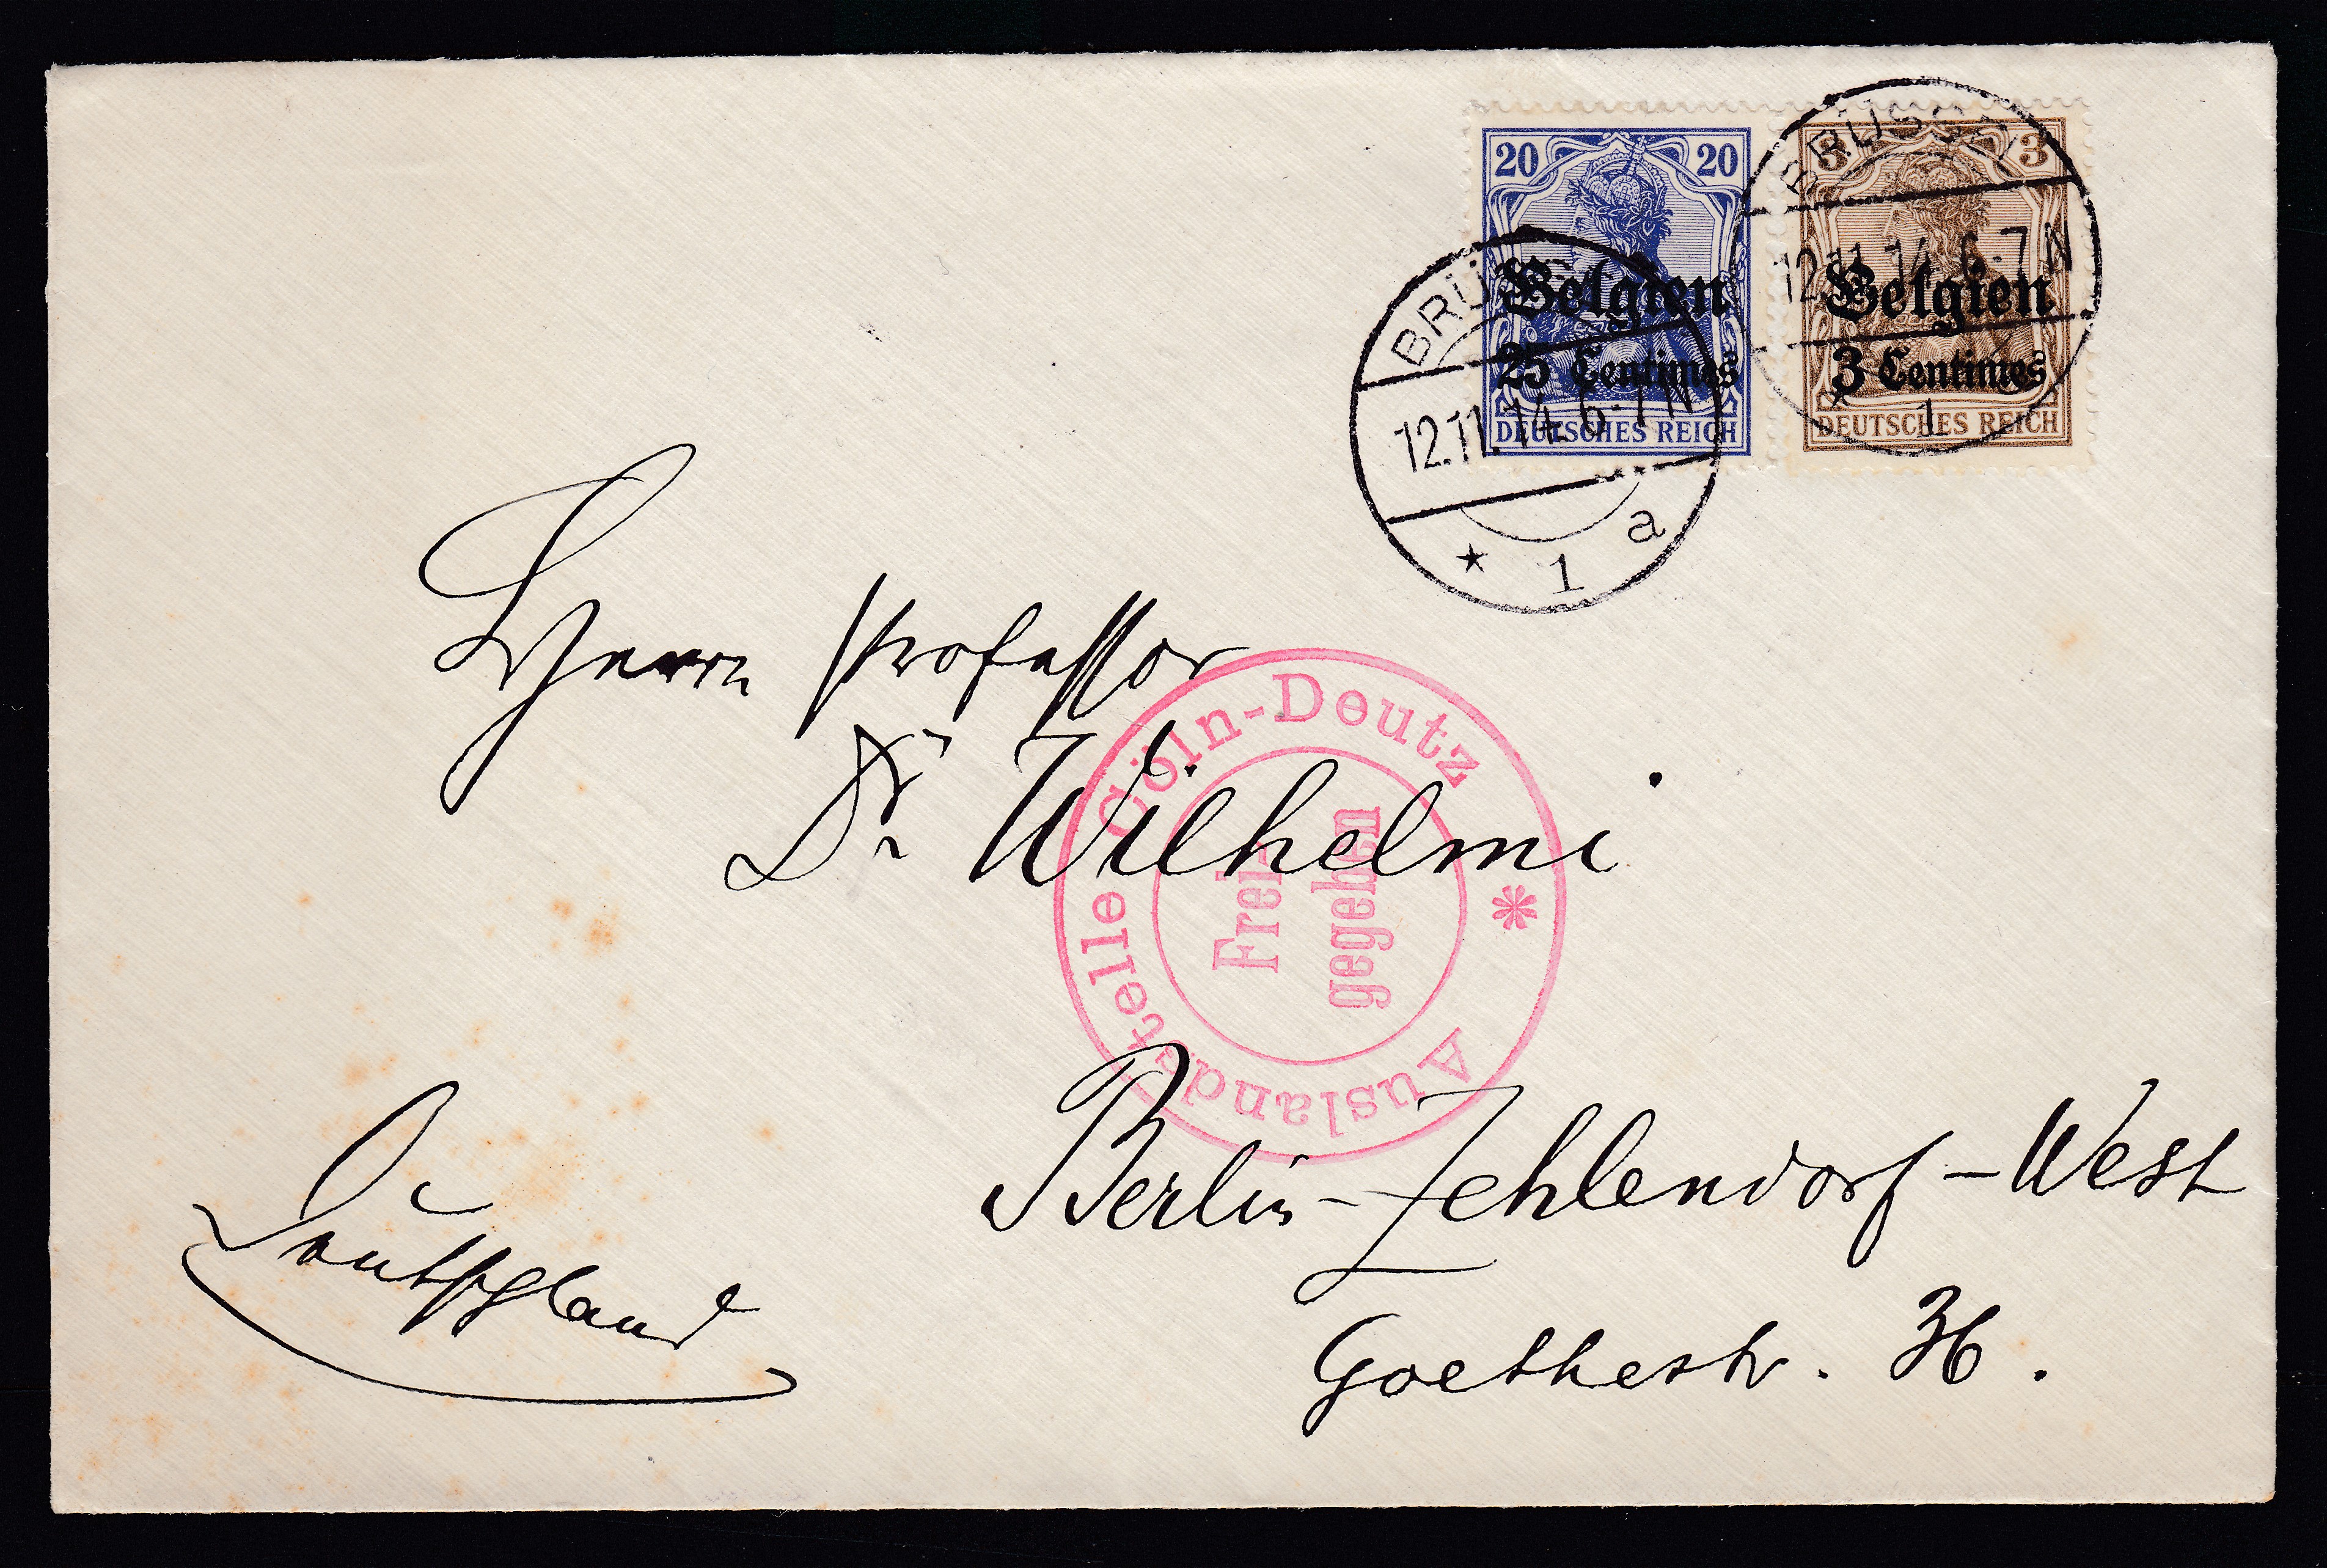 20 20
Belgien
25 Centimes
DEUTSCHES REICH
3 3
Belgien
3 Centimes
DEUTSCHES REICH
BRÜSSEL
12.11.14. 6-7 N
* 1 a
BRÜSSEL
12.11.14. 6-7 N
1
Herrn Professor
Dr. Wilhelmi
Auslandstelle Cöln-Deutz *
Frei-
gegeben
Berlin-Zehlendorf-West
Goethestr. 36.
Deutschland